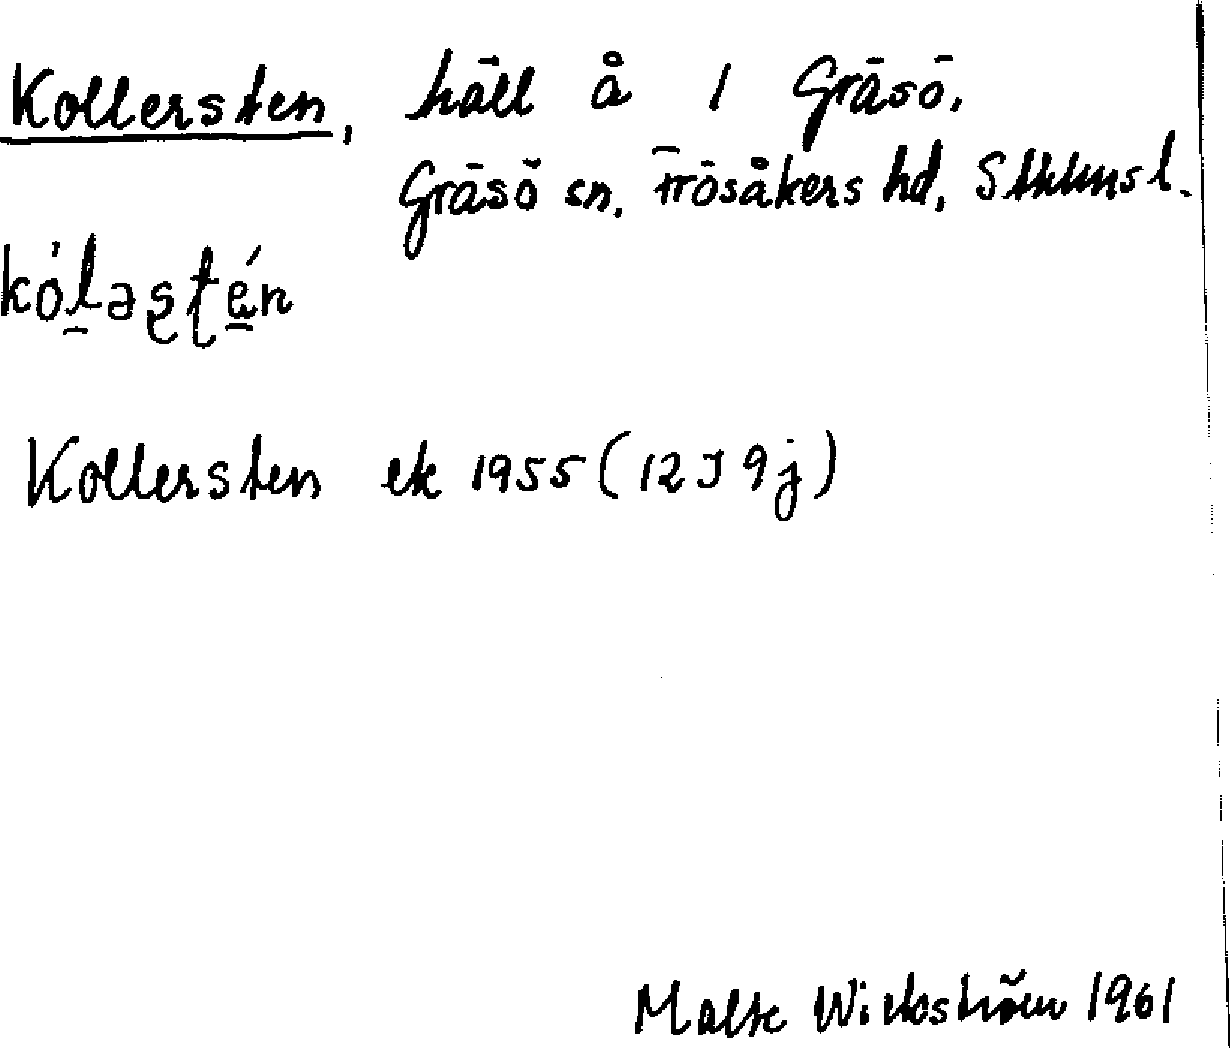 Kollersten, häll å 1 Gräsö.
Gräsö sn, Frösåkers hd, Sthlms l.
kòl̠əʂʈén
Kollersten ek 1955 (12J 9j)
Malte Wickström 1961